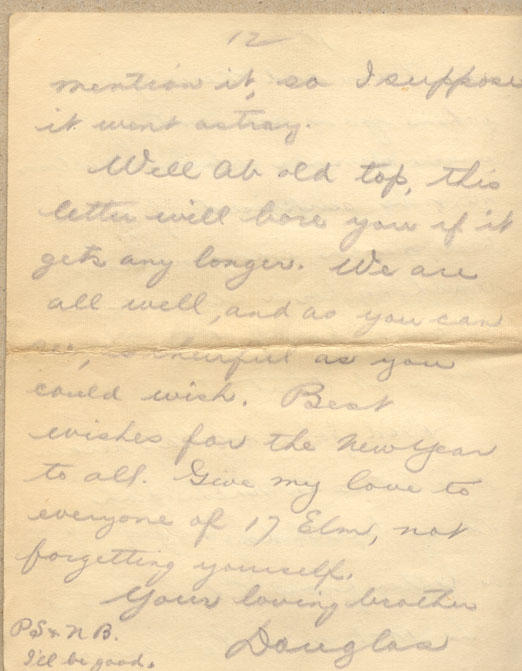 12
mention it, so I suppose
it went astray.
Well Ab old top, this
letter will bore you if it
gets any longer. We are
all well, and as you can
see, as cheerful as you
could wish. Best
wishes for the New Year
to all. Give my love to
everyone of 17 Elm, not
forgetting yourself.
Your loving brother
Douglas
P.S. & N.B.
I'll be good.